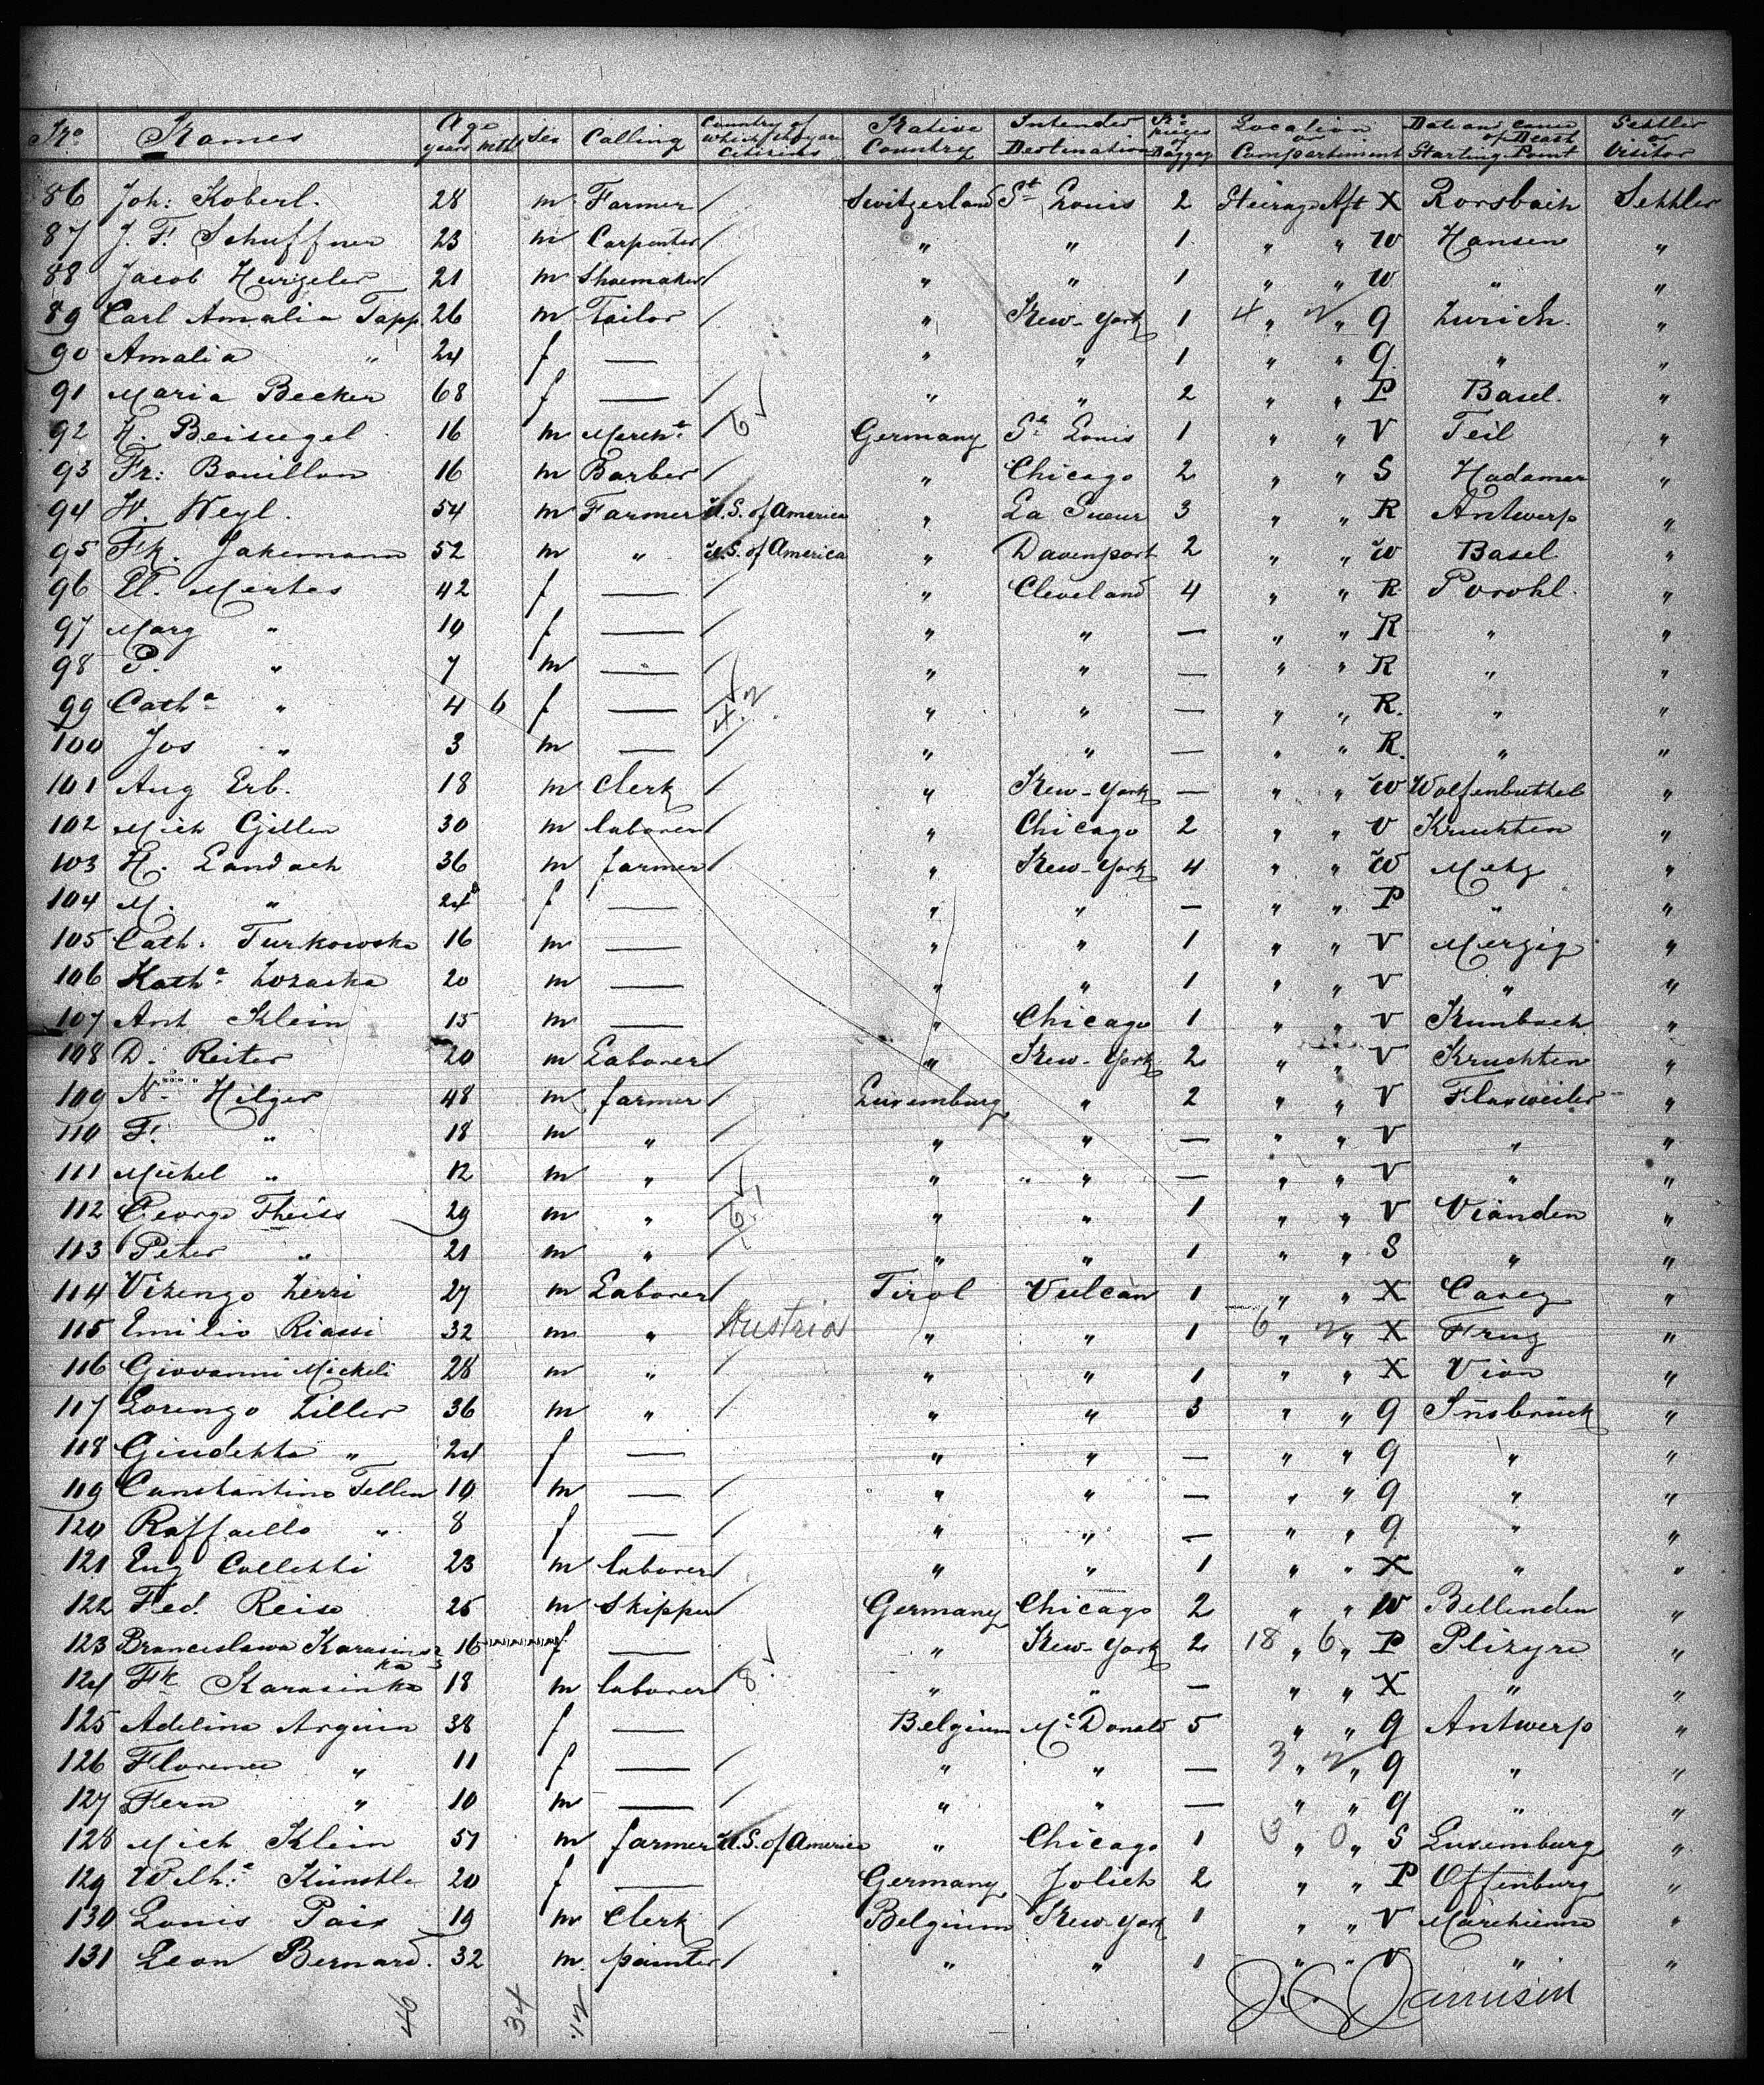 No Names Age years mths Sex Calling Country of which they are Citizens Native Country Intended Destination No pieces of Baggag Location or Compartment Date and Cause of Death Starting Point Settler or Visitor
86 Joh: Koberl. 28 m Farmer / Switzerland St Louis 2 Steirage Aft X Rorsbach Settler
87 J. F. Schuffner 23 m Carpenter / " " 1 " " W Hansen "
88 Jacob Hurgeler 21 m Shoemaker / " " 1 " " W " "
89 Carl Amalia Tapp. 26 m Tailor / " New-York 1 4 " 2 " q Zurich. "
90 Amalia " 24 f — " " 1 " " q " "
91 Maria Becker 68 f — / " " 2 " " P Basel. "
92 H. Beisiegel 16 m Marcht / 6 Germany St Louis 1 " " V Teil "
93 Fr: Bouillon 16 m Barber / " Chicago 2 " " S Hadamar "
94 W. Weyl. 54 m Farmer U.S. of America " La Sueur 3 " " R Antwerp "
95 Fk. Jakemann 52 m " U.S. of America " Davenport 2 " " W Basel "
96 El. Mertes 42 f — / " Cleveland 4 " " R "
97 Marg " 19 f — / " " — " " R " "
98 P. " 7 m — / " " — " " R " "
99 Catha " 4 6 f — / 4.2 " " — " " R. " "
100 Jos " 3 m — / " " — " " R. " "
101 Aug Erb. 18 m Clerk / " New-York — " " W Wolfenbuttel "
102 Mich Gillen 30 m laborer / " Chicago 2 " " V Kruchten "
103 H. Landach 36 m farmer / " New-York 4 " " W Metz "
104 M. " 24 f — " " — " " P " "
105 Cath. Turkowska 16 m — " " 1 " " V Merzig "
106 Katha Lozaska 20 m — " " 1 " " V " "
107 Ant Klein 15 m — " Chicago 1 " " V Kunbach "
108 D. Reiter 20 m Laborer / " New-York 2 " " V Kruchten "
109 N. Hilger 48 m farmer / Luxemburg " 2 " " V Flaxweiler "
110 F. " 18 m " / " " — " " V " "
111 Michel " 12 m " / " " — " " V " "
112 George Theiss 29 m " / 6.1 " " 1 " " V Vianden "
113 Peter " 21 m " / " " 1 " " S " "
114 Vizengo Zerri 27 m Laborer / Tirol Vulcan 1 " " X Carez "
115 Emilio Riassi 32 m " Austria " " 1 6 " 2 " X Frug "
116 Giovanni Micheli 28 m " / " " 1 " " X Vion "
117 Lorenzo Ziller 36 m " / " " 3 " " q Insbruck "
118 Giudetta " 24 f — " " — " " q " "
119 Constantino Tellen 19 m — / " " — " " q " "
120 Raffaello " 8 f — / " " — " " q " "
121 Eug Colletti 23 m laborer / " " 1 " " X " "
122 Fed. Reise 25 m Skipper / Germany Chicago 2 " " W Bellenden "
123 Brancislawa Karasinska 16 f — " New-York 2 18 " 6 " P Plizyre "
124 Fk Karasinka 18 m laborer / 8 " " — " " X " "
125 Adelina Arquin 38 f — Belgium Mc Donald 5 " " q Antwerp "
126 Florence " 11 f — / " " — 3 " 2 " q " "
127 Fern " 10 m — / " " — " " q " "
128 Mich Klein 51 m farmer U.S. of America " Chicago 1 3 " 0 " S Luxemburg "
129 Wilha Künstle 20 f — Germany Joliet 2 " " P Offenburg "
130 Louis Pair 19 m Clerk / Belgium New-York 1 " " V Marchienne "
131 Leon Bernard. 32 m. painter / " " 1 " " V " "
46 34 12